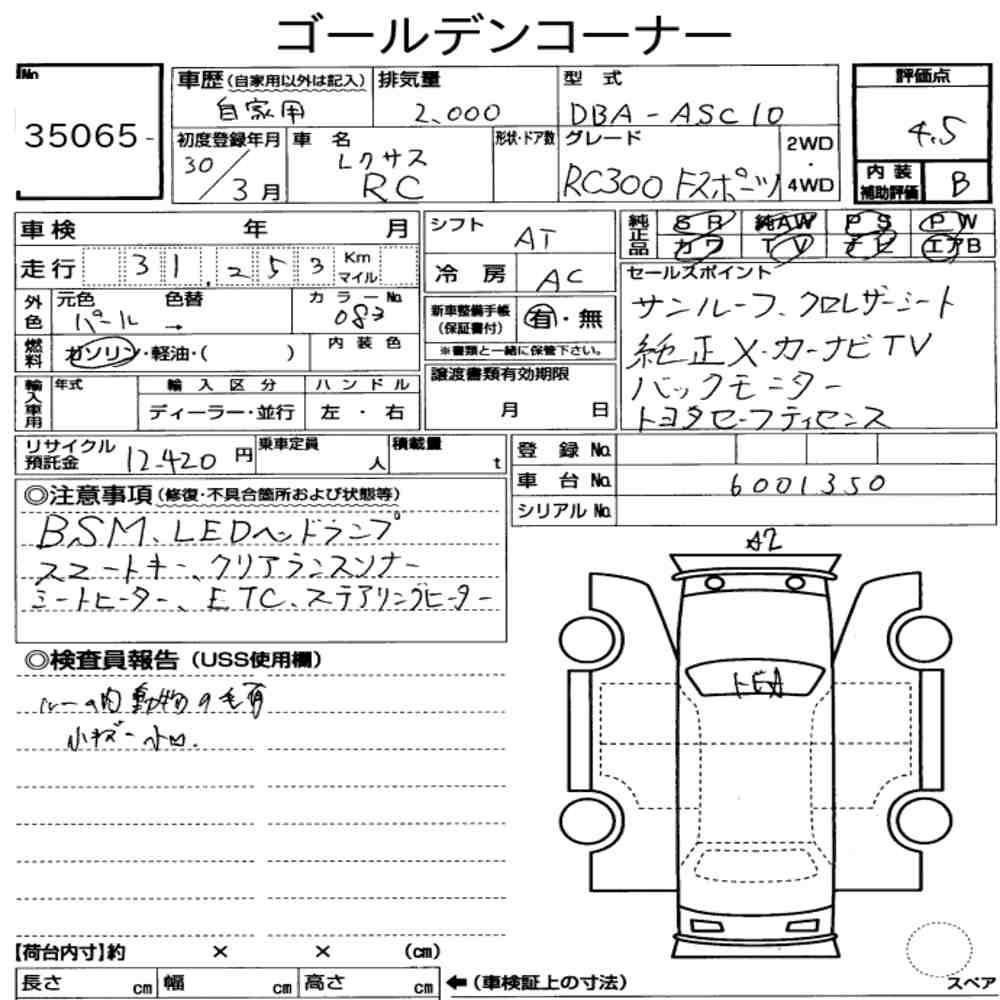 ゴールデンコーナー
No. 35065-
車歴(自家用以外は記入) 自家用
排気量 2,000
型式 DBA-ASC10
評価点 4.5
初度登録年月 30/3月
車名 レクサス RC
形状・ドア数
グレード RC300 Fスポーツ
2WD・4WD
内装補助評価 B
車検 年 月
走行 31,253 Km マイル
シフト AT
冷房 AC
純正品 SR 純AW PS PW
カワ TV ナビ エアB
外色 元色 パール 色替 →
カラーNo. 083
燃料 ガソリン・軽油・( )
内装色
新車整備手帳(保証書付) 有・無
※書類と一緒に保管下さい。
セールスポイント
サンルーフ、クロレザーシート
純正メーカーナビTV
バックモニター
トヨタセーフティセンス
輸入車用 年式 輸入区分 ディーラー・並行 ハンドル 左・右
譲渡書類有効期限 月 日
リサイクル預託金 12,420円
乗車定員 人
積載量 t
登録No.
車台No. 6001350
シリアルNo.
◎注意事項(修復・不具合箇所および状態等)
BSM、LEDヘッドランプ
スマートキー、クリアランスソナー
シートヒーター、ETC、ステアリングヒーター
◎検査員報告(USS使用欄)
ルーム内動物の毛有
小キズ 小凹.
A2
トビA
【荷台内寸】約 × × (cm)
長さ cm 幅 cm 高さ cm ←(車検証上の寸法)
スペア